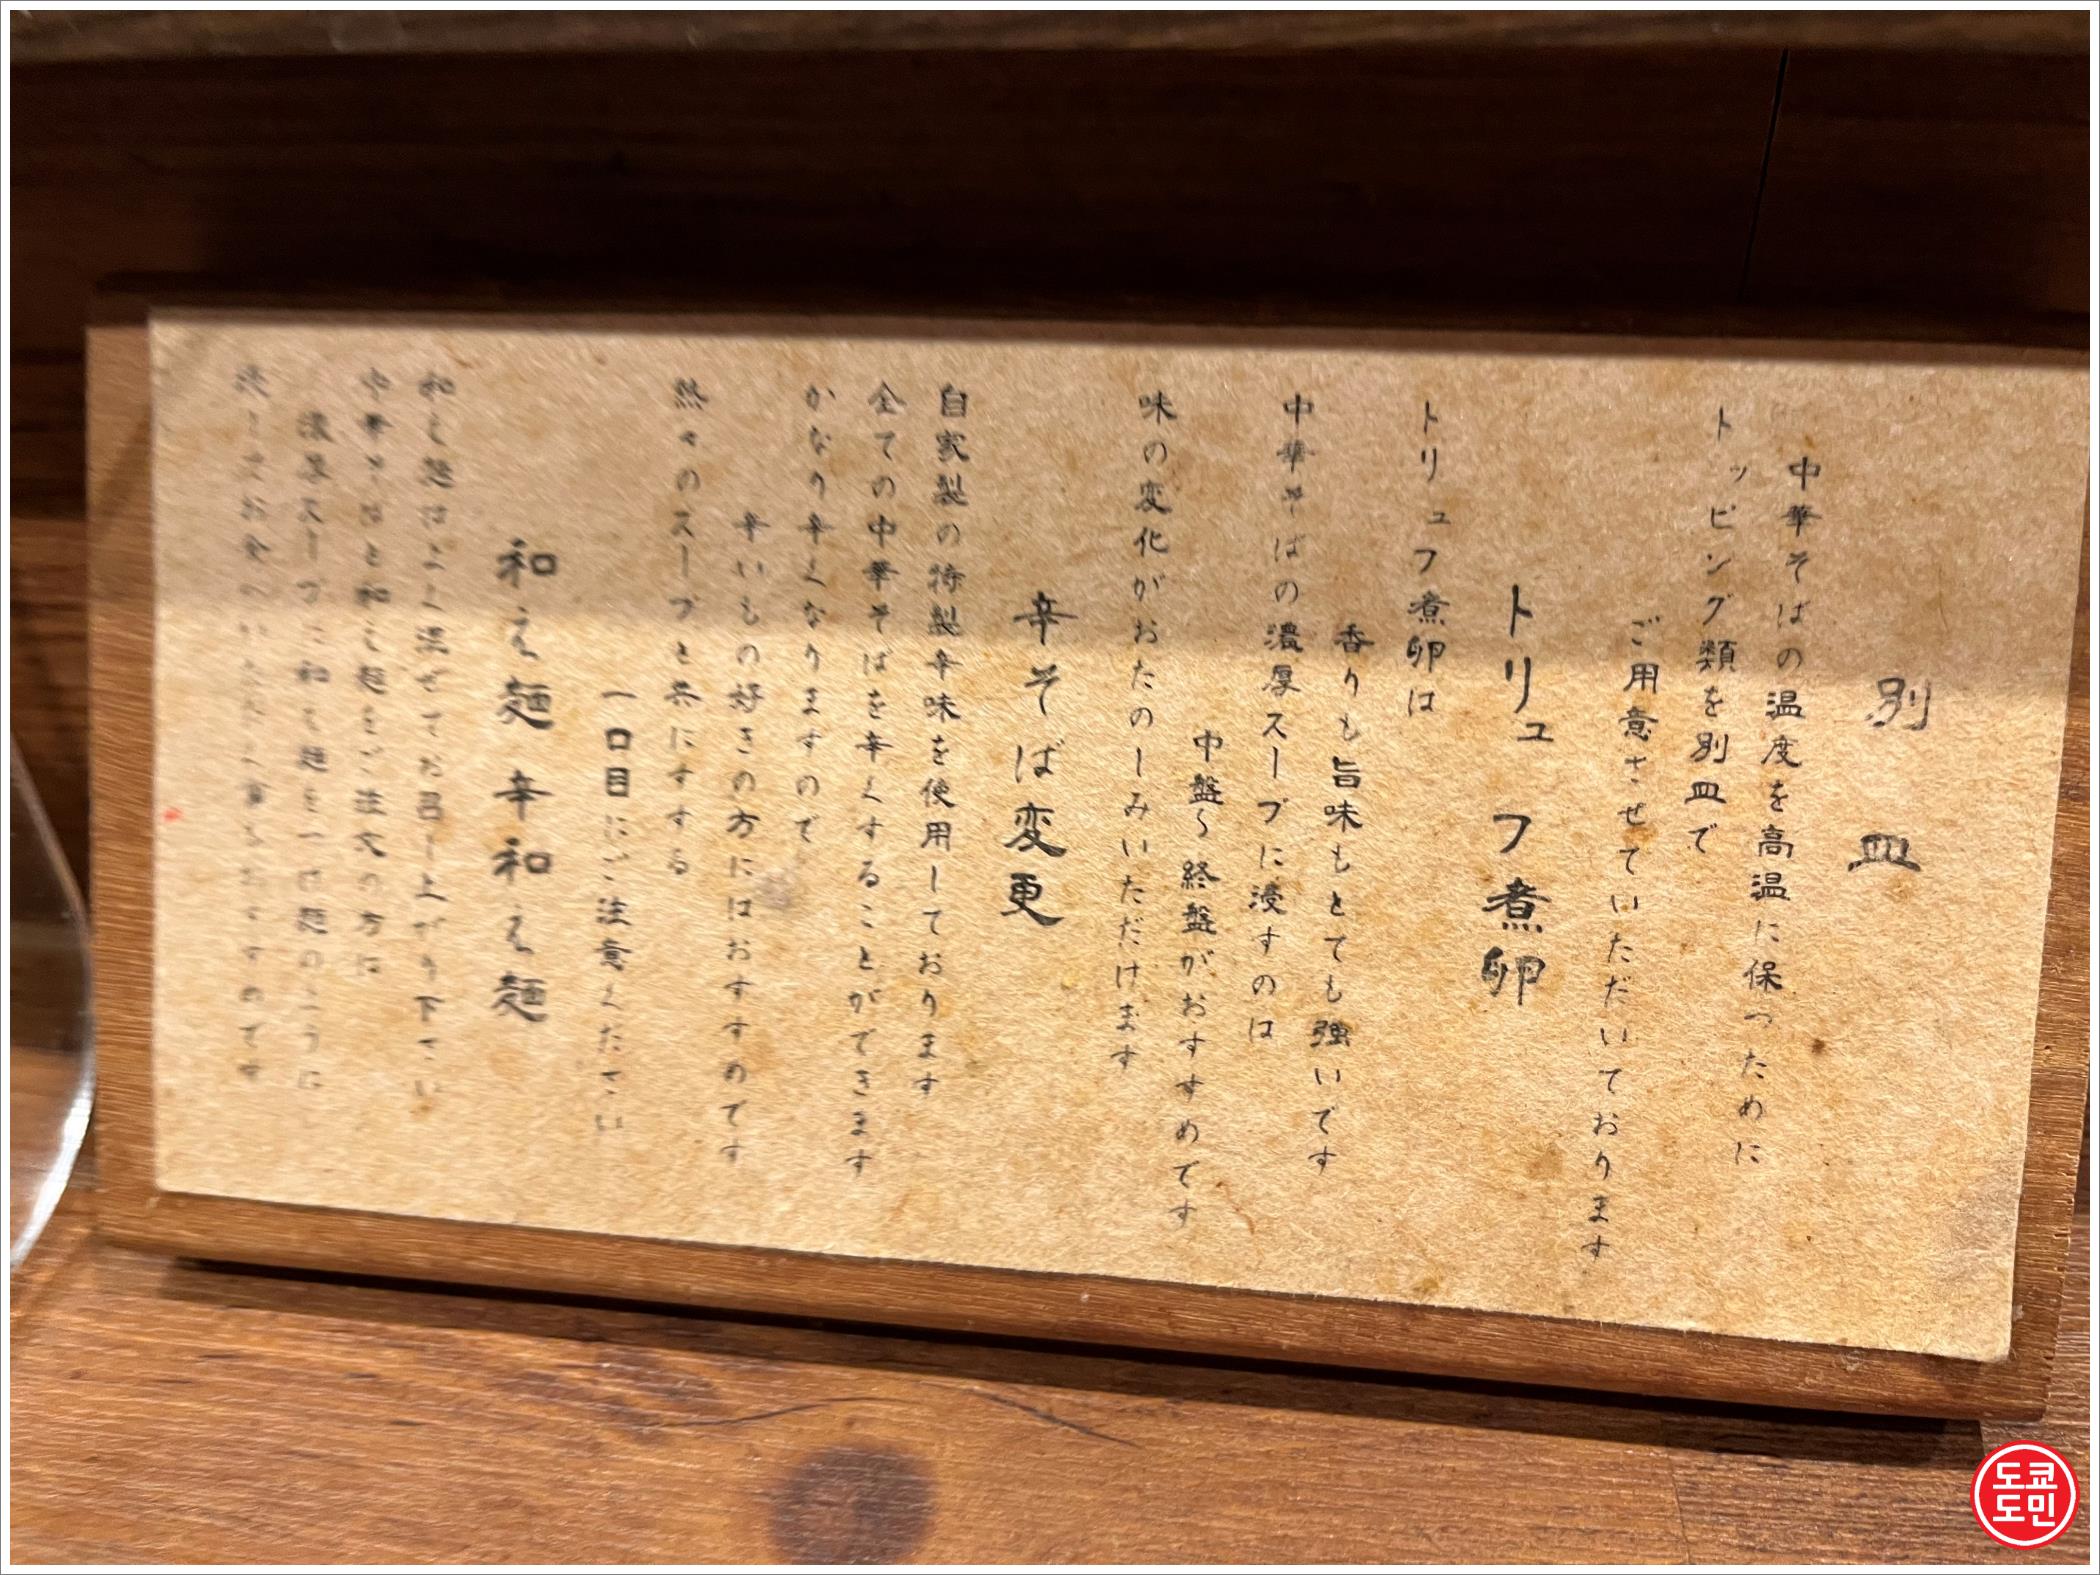 別皿
中華そばの温度を高温に保つために
トッピング類を別皿で
ご用意させていただいております
トリュフ煮卵
トリュフ煮卵は
香りも旨味もとても強いです
中華そばの濃厚スープに浸すのは
中盤〜終盤がおすすめです
味の変化がおたのしみいただけます
辛そば変更
自家製の特製辛味を使用しております
全ての中華そばを辛くすることができます
かなり辛くなりますので
辛いもの好きの方にはおすすめです
熱々のスープと共にすする
一口目にご注意ください
和え麺 辛和え麺
和え麺はよく混ぜてお召し上がり下さい
中華そばと和え麺をご注文の方は
濃厚スープに和え麺をつけ麺のように
浸してお召
도쿄
도민